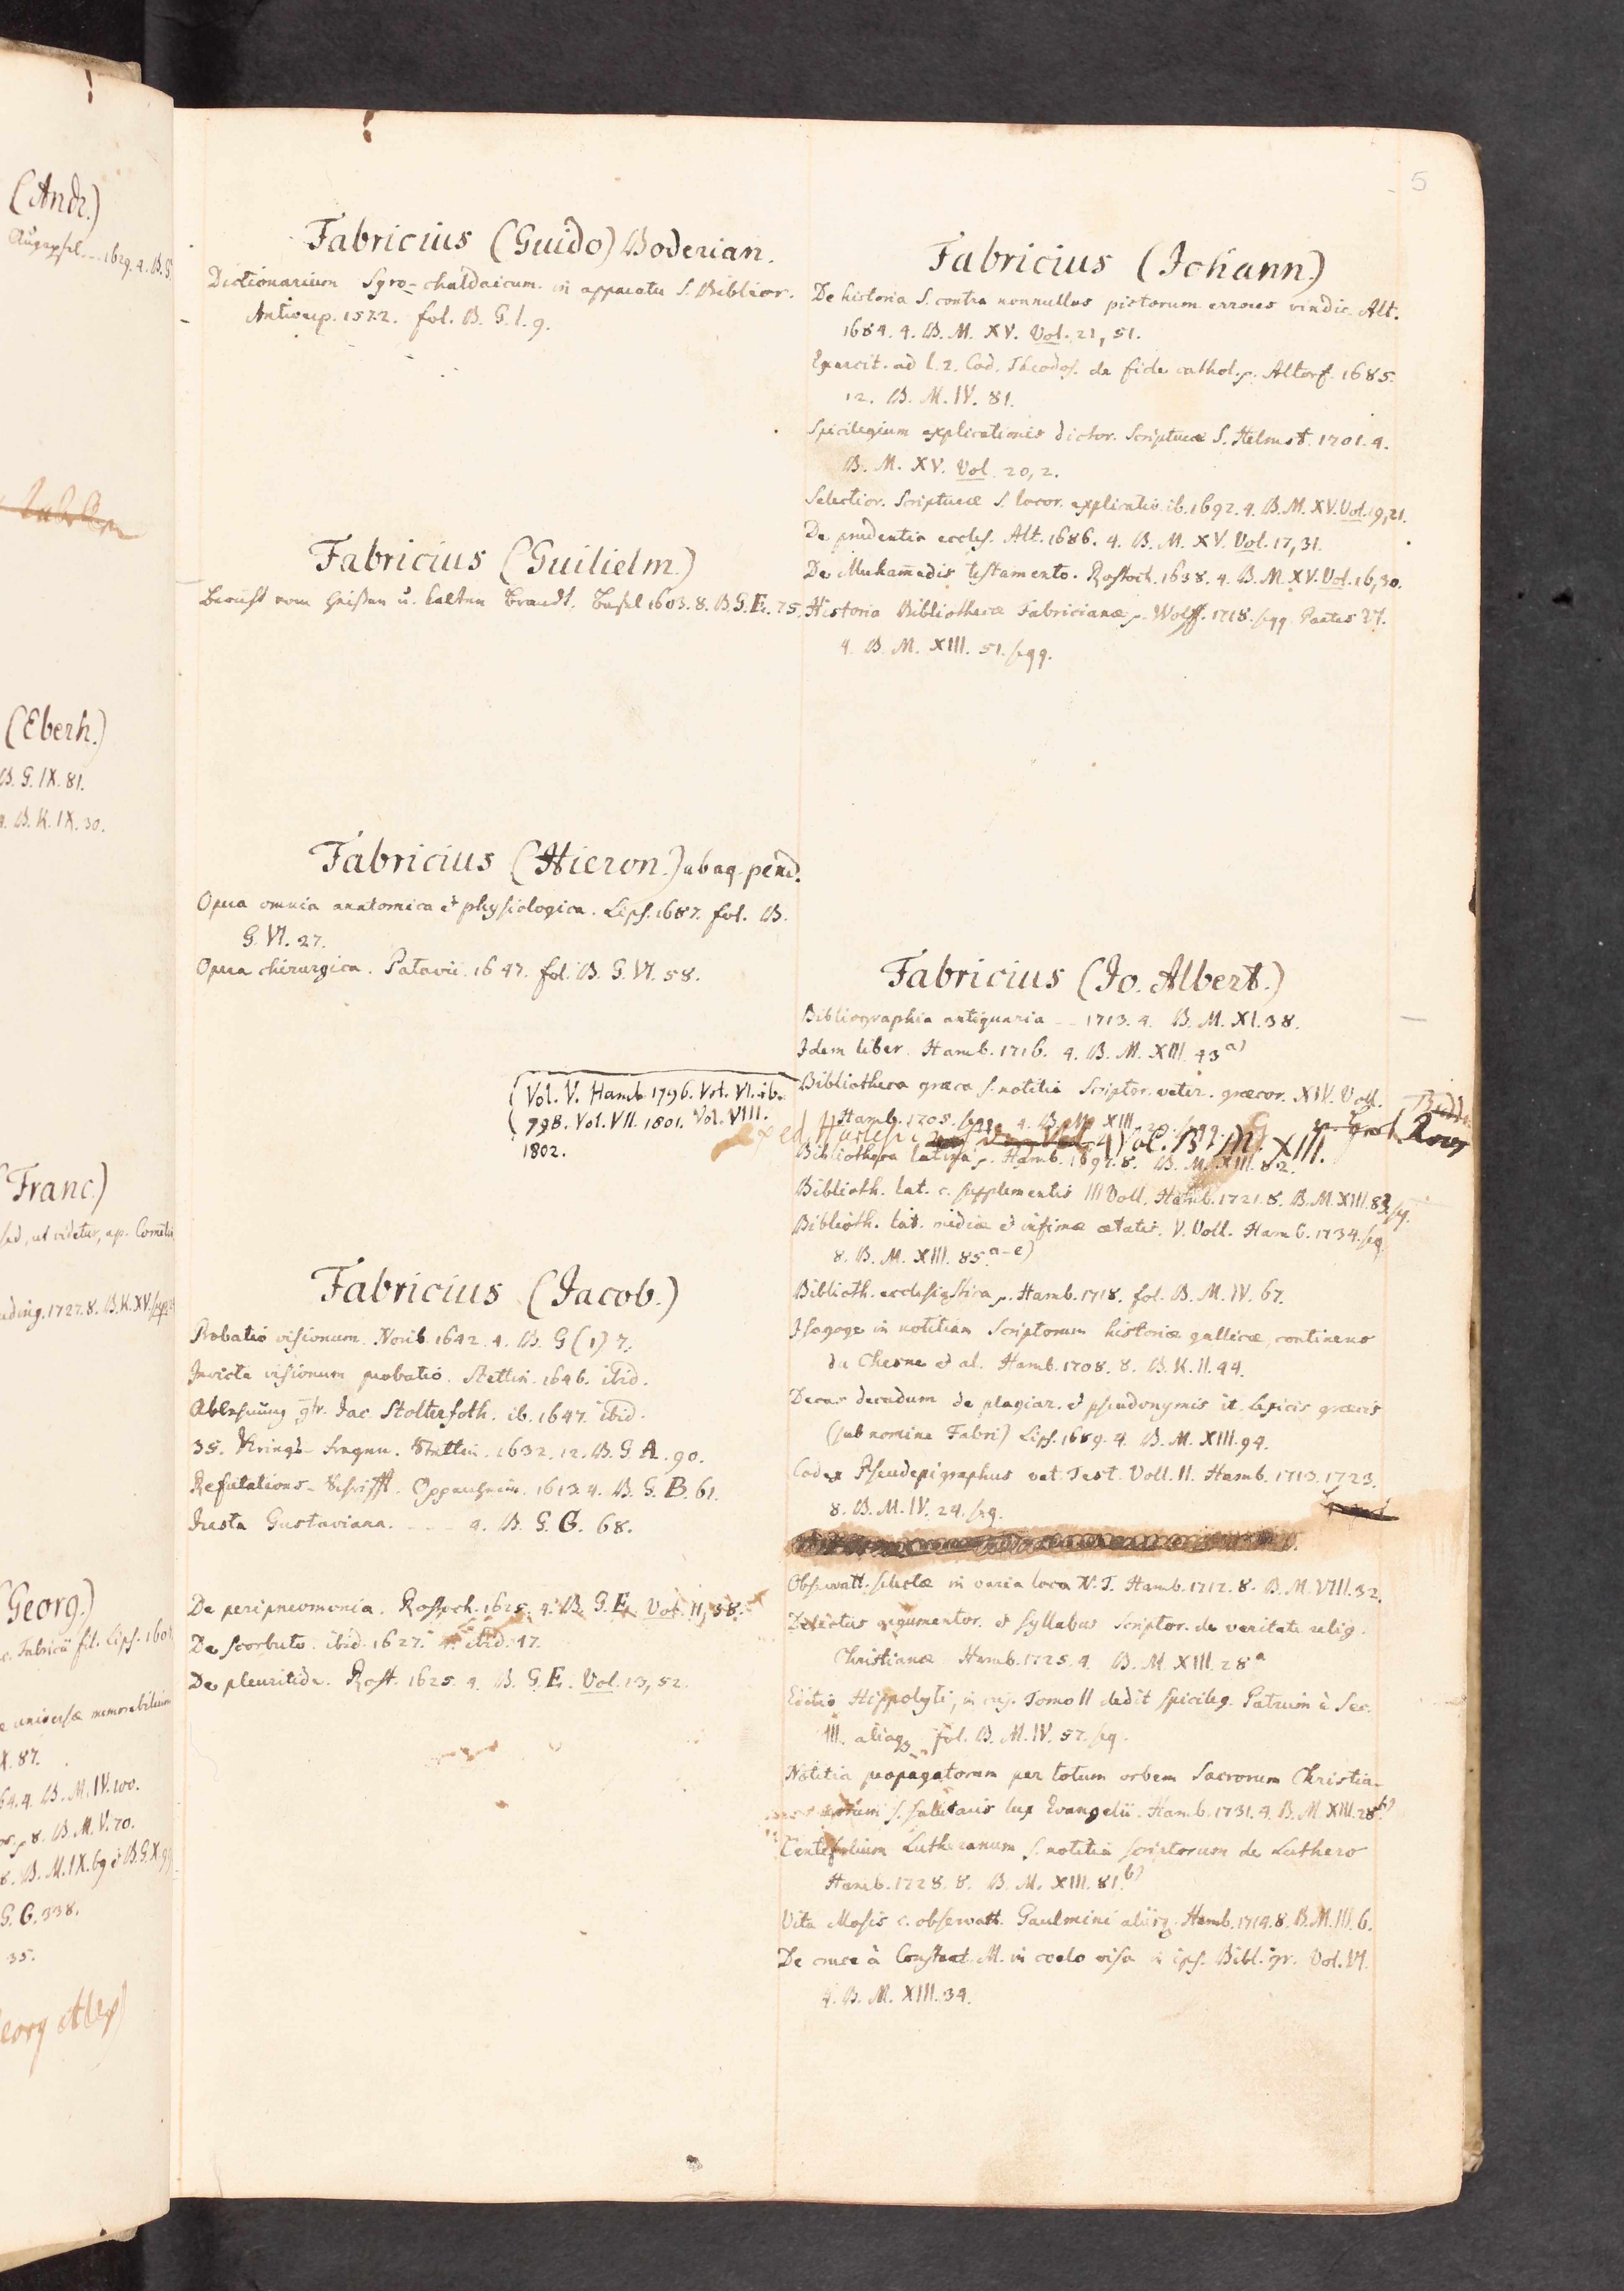 5
Fabricius (Guido) Boderian.
Dictionarium Syro-chaldaicum in apparatu S. Biblior.
Antwerp. 1572. fol. B. G. I. 9.
Fabricius (Guilielm.)
Bericht vom heißen u. kalten Brandt. Basel 1603. 8. B. G. E. 75.
Fabricius (Hieron.) ab aq. pend.
Opera omnia anatomica & physiologica. Lips. 1687. fol. B.
G. VI. 27.
Opera chirurgica. Patavii. 1647. fol. B. G. VI. 58.
Vol. V. Hamb. 1796. Vol. VI. ib.
798. Vol. VII. 1801. Vol. VIII.
1802.
Fabricius (Jacob.)
Probatio visionum. Norib. 1642. 4. B. G (1) 7.
Invicta visionum probatio. Stettin. 1646. ibid.
Ablehnung Jac. Stolterfoth. ib. 1647. ibid.
35. Kriegs-Fragen. Stettin. 1632. 12. B. G. A. 90.
Refutations-Schrifft. Oppenheim. 1613. 4. B. G. B. 61.
Justa Gustaviana. - - - 4. B. G. G. 68.
De peripneumonia. Rostoch. 1625. 4. B. G. E. Vol. 11, 38.
De scorbuto. ibid. 1627. 4. ibid. 47.
De pleuritide. Rost. 1625. 4. B. G. E. Vol. 13, 52.
Fabricius (Johann.)
De historia S. contra nonnullos pictorum errores vindic. Alt.
1684. 4. B. M. XV. Vol. 21, 51.
Exercit. ad l. 2. Cod. Theodos. de fide cathol. Altorf. 1685.
12. B. M. IV. 81.
Spicilegium explicationis dictor. Scripturæ S. Helmst. 1701. 4.
B. M. XV. Vol. 20, 2.
Selectior. Scripturæ S. locor. explicatio ib. 1692. 4. B. M. XV. Vol. 19, 21.
De prudentia eccles. Alt. 1686. 4. B. M. XV. Vol. 17, 31.
De Muham̄edis testamento. Rostoch. 1638. 4. B. M. XV. Vol. 16, 30.
Historia Bibliothecæ Fabricianæ. Wolff. 1718. sqq. Partes VI.
4. B. M. XIII. 51. sqq.
Fabricius (Jo. Albert.)
Bibliographia antiquaria - - 1713. 4. B. M. XI. 38.
Idem liber. Hamb. 1716. 4. B. M. XIII. 43 a)
Bibliotheca græca s. notitia Scriptor. veter. græcor. XIV. Voll.
Hamb. 1705. sqq. 4. B. M. XIII. 29. sqq.
ex ed. Harlesii 4 Vol. B. M. XIII.
Bibliotheca latina. Hamb. 1697. 8. B. M. XIII. 82.
Biblioth. lat. c. supplementis III Voll. Hamb. 1721. 8. B. M. XIII. 83. sq.
Biblioth. lat. mediæ & infimæ ætatis. V. Voll. Hamb. 1734. sq.
8. B. M. XIII. 85. a-e)
Biblioth. ecclesiastica. Hamb. 1718. fol. B. M. IV. 67.
Isagoge in notitiam Scriptorum historiæ gallicæ, continens
du Chesne & al. Hamb. 1708. 8. B. K. II. 44.
Decas decadum de plagiar. & pseudonymis it. lexicis græcis
(sub nomine Fabri) Lips. 1689. 4. B. M. XIII. 94.
Codex Pseudepigraphus vet. Test. Voll. II. Hamb. 1713. 1723.
8. B. M. IV. 24. sq.
Observatt. selectæ in varia loca N. T. Hamb. 1712. 8. B. M. VIII. 32.
Delectus argumentor. & syllabus scriptor. de veritate relig.
Christianæ Hamb. 1725. 4. B. M. XIII. 28 a
Editio Hippolyti, in cuj. Tomo II dedit spicileg. Patrum è Sec.
III. aliaq; fol. B. M. IV. 57. sq.
Notitia propagatorum per totum orbem Sacrorum Christia-
norum s. salutaris lux Evangelii. Hamb. 1731. 4. B. M. XIII. 28. b)
Centifolium Lutheranum s. notitia scriptorum de Luthero
Hamb. 1728. 8. B. M. XIII. 81. b)
Vita Mosis c. observatt. Gaulmini aliisq. Hamb. 1714. 8. B. M. III. 6.
De cruce à Constant. M. in coelo visa in ips. Bibl. gr. Vol. VI.
4. B. M. XIII. 34.
(Andr.)
(Eberh.)
B. G. IX. 81.
B. K. IX. 30.
(Franc.)
sed, ut videtur, ap. Comelin
1727. 8. B. K. XV.
(Georg.)
Fabricii fil. Lips. 160
universæ memorabilium
X. 87.
64. 4. B. M. IV. 100.
8. B. M. V. 70.
8. B. M. IX. 69 & B. G. X. 99
G. G. 338.
35.